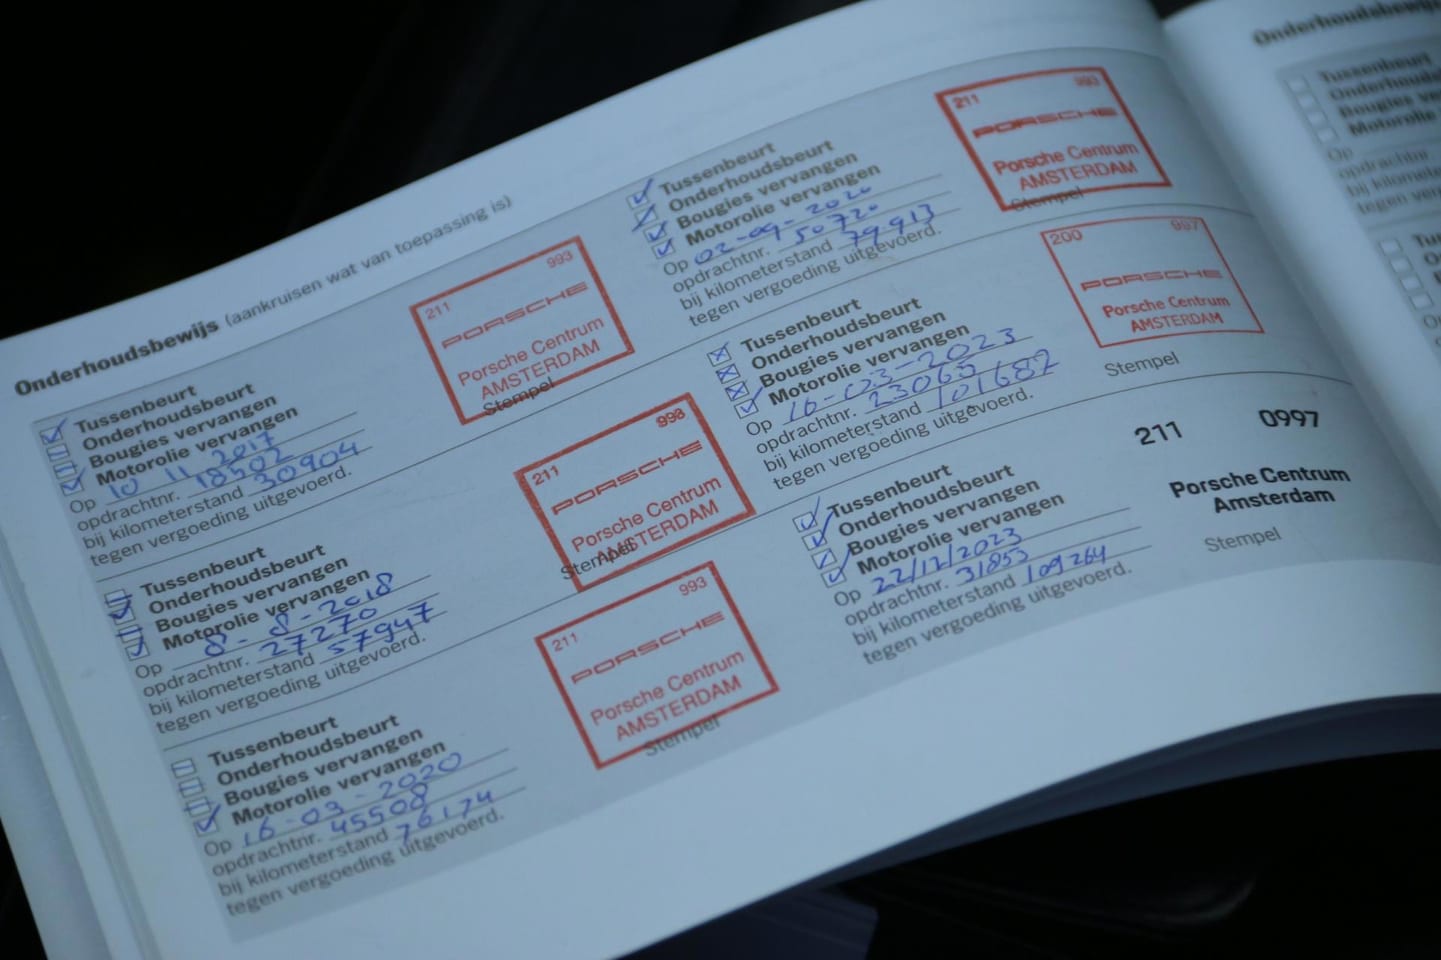 Onderhoudsbewijs (aankruisen wat van toepassing is)
Tussenbeurt
Onderhoudsbeurt
Bougies vervangen
Motorolie vervangen
Op 10 11 2017
opdrachtnr. 18502
bij kilometerstand 30904
tegen vergoeding uitgevoerd.
211 993
PORSCHE
Porsche Centrum
AMSTERDAM
Stempel
Tussenbeurt
Onderhoudsbeurt
Bougies vervangen
Motorolie vervangen
Op 8-8-2018
opdrachtnr. 27270
bij kilometerstand 57947
tegen vergoeding uitgevoerd.
211 993
PORSCHE
Porsche Centrum
AMSTERDAM
Stempel
Tussenbeurt
Onderhoudsbeurt
Bougies vervangen
Motorolie vervangen
Op 16-03-2020
opdrachtnr. 45508
bij kilometerstand 76174
tegen vergoeding uitgevoerd.
211 993
PORSCHE
Porsche Centrum
AMSTERDAM
Stempel
Tussenbeurt
Onderhoudsbeurt
Bougies vervangen
Motorolie vervangen
Op 02-09-2020
opdrachtnr. 50720
bij kilometerstand 79913
tegen vergoeding uitgevoerd.
211 993
PORSCHE
Porsche Centrum
AMSTERDAM
Stempel
Tussenbeurt
Onderhoudsbeurt
Bougies vervangen
Motorolie vervangen
Op 16-03-2023
opdrachtnr. 23065
bij kilometerstand 101687
tegen vergoeding uitgevoerd.
200 997
PORSCHE
Porsche Centrum
AMSTERDAM
Stempel
Tussenbeurt
Onderhoudsbeurt
Bougies vervangen
Motorolie vervangen
Op 22/12/2023
opdrachtnr. 31853
bij kilometerstand 109264
tegen vergoeding uitgevoerd.
211 0997
Porsche Centrum
Amsterdam
Stempel
Onderhoudsbewijs
Tussenbeurt
Onderhouds
Bougies verva
Motorolie ve
Op
opdrachtnr.
bij kilomet
tegen verg